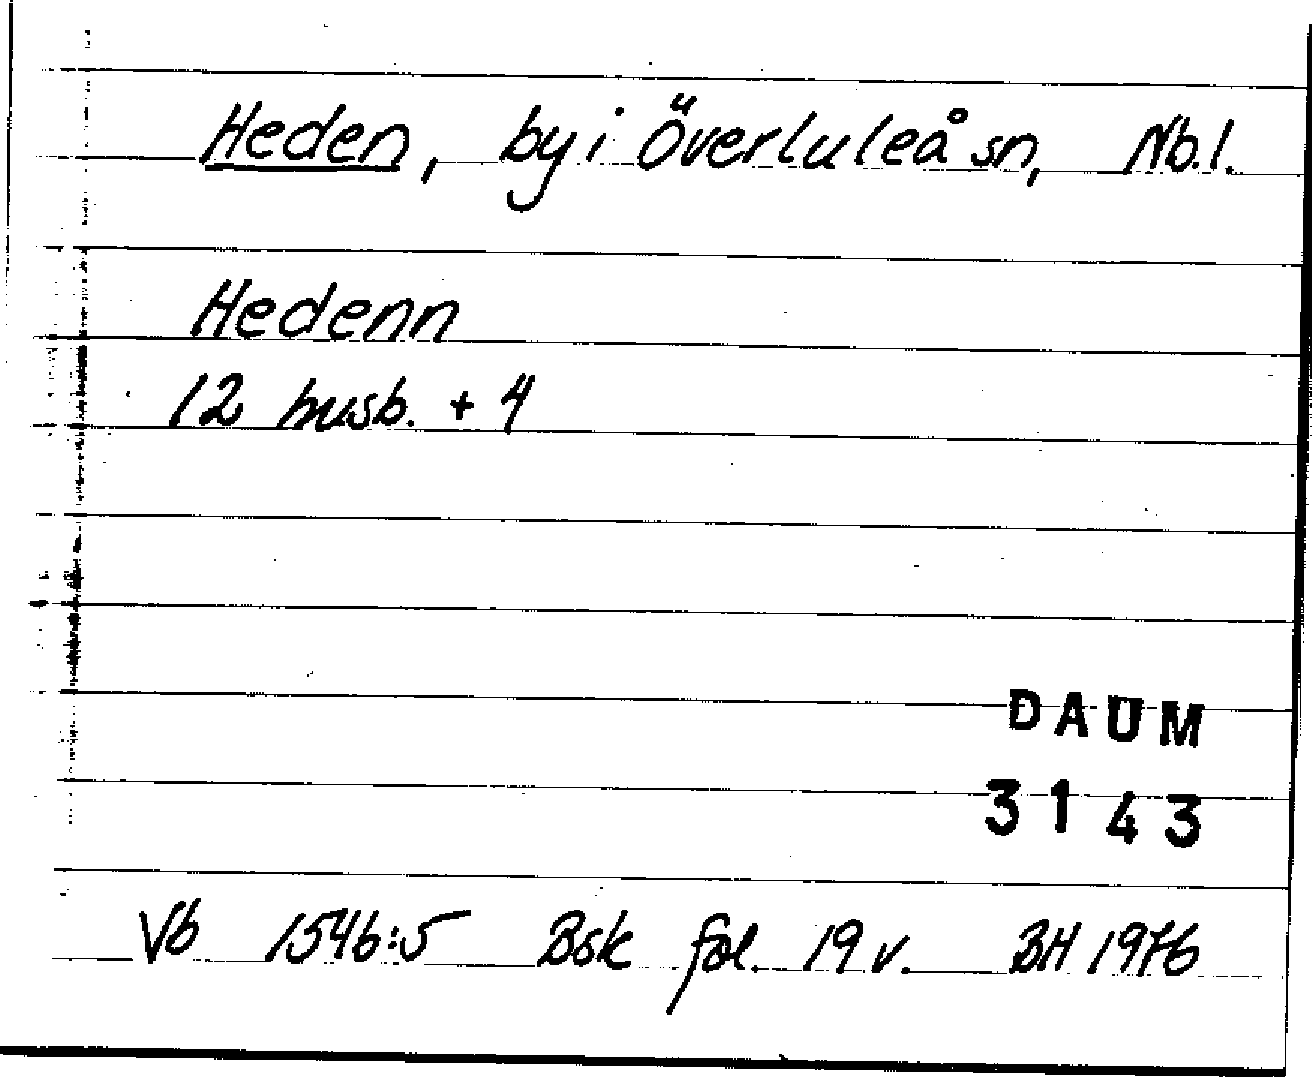 Heden, by i Överluleå sn, Nb.l.
Hedenn
12 husb. + 4
DAUM
3143
Vb 1546:5 Bsk fol. 19 v. BH 1976